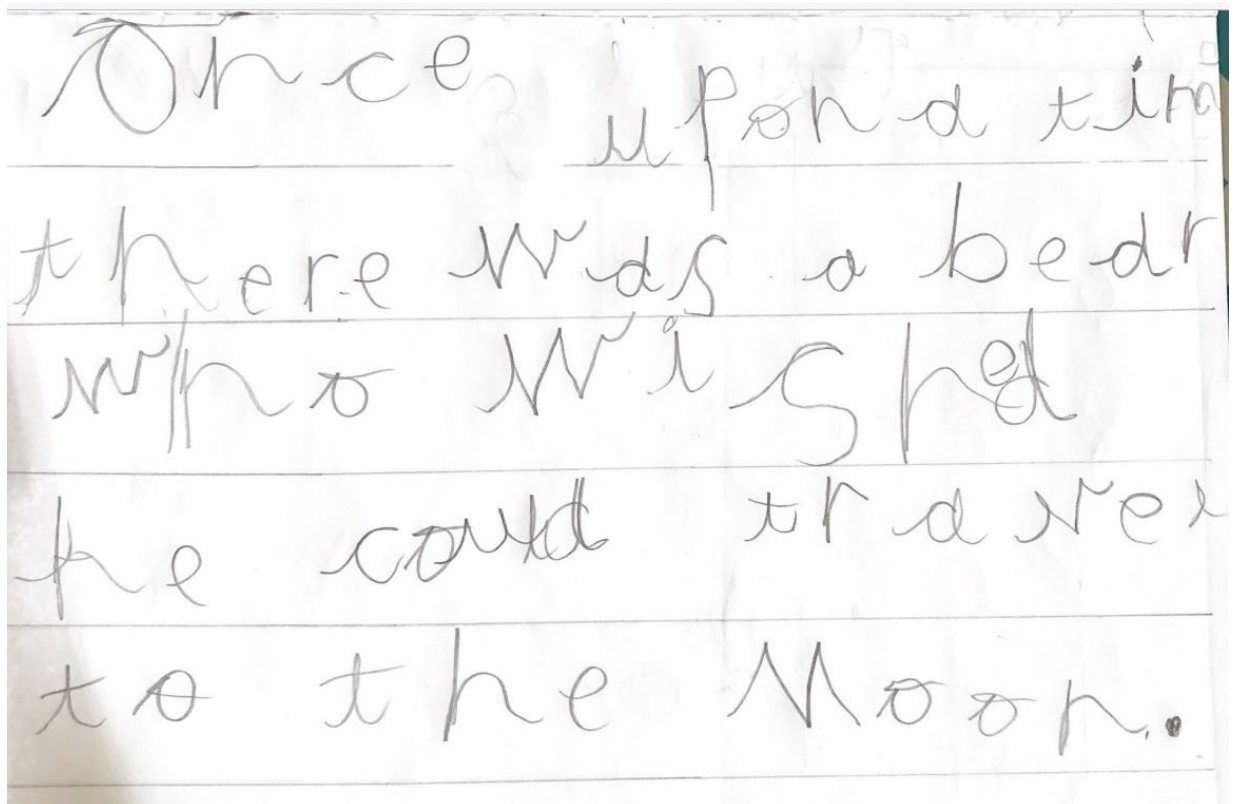 Once upon a time
there was a bear
who wished
he could travel
to the Moon.